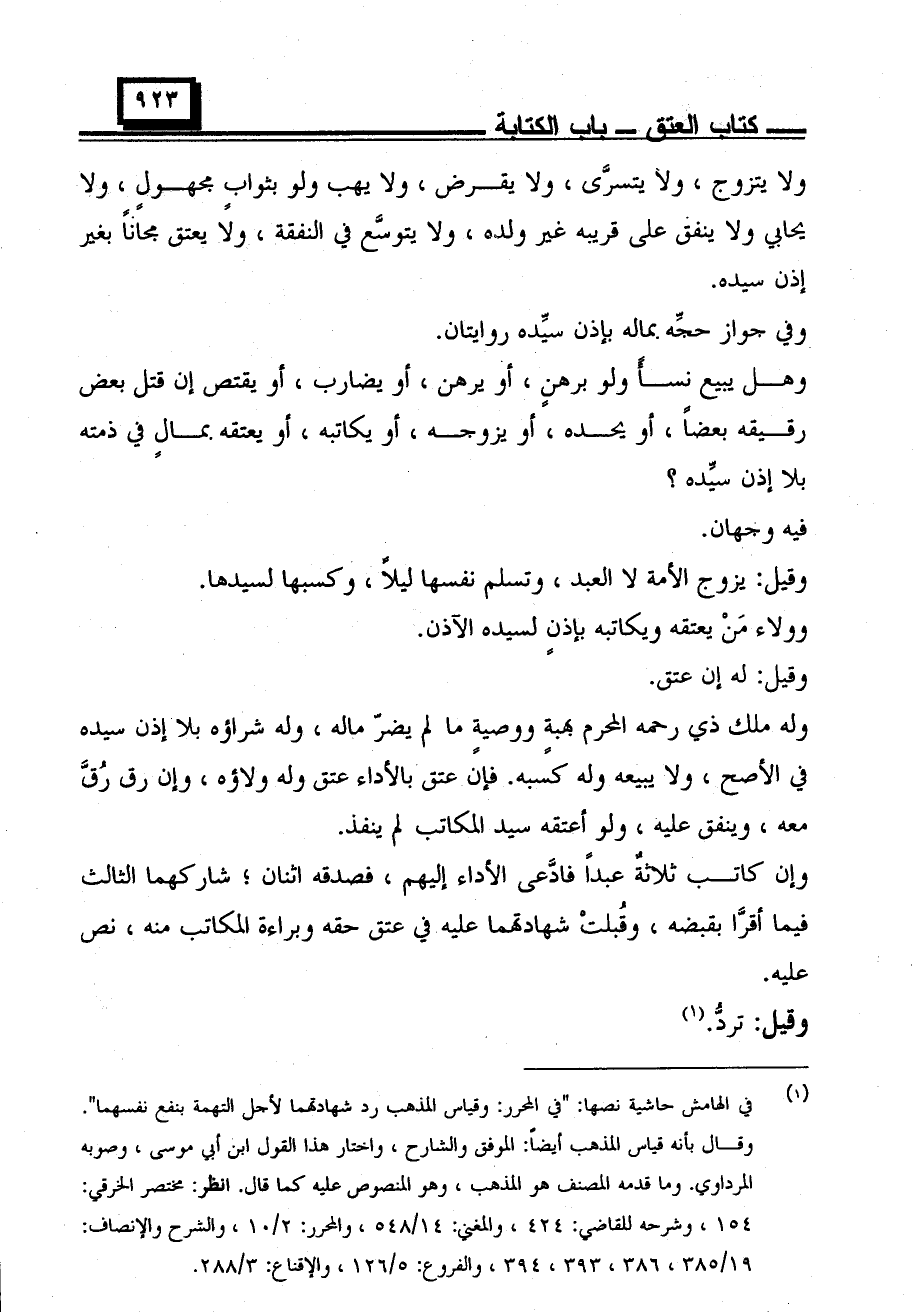 ٩٢٣
كتاب العتق – باب الكتابة
ولا يتزوج ، ولا يتسرَّى ، ولا يقرض ، ولا يهب ولو بثوابٍ مجهولٍ ، ولا
يحابي ولا ينفق على قريبه غير ولده ، ولا يتوسَّع في النفقة ، ولا يعتق مجاناً بغير
إذن سيده.
وفي جواز حجِّه بماله بإذن سيِّده روايتان.
وهل يبيع نسأً ولو برهنٍ ، أو يرهن ، أو يضارب ، أو يقتص إن قتل بعض
رقيقه بعضاً ، أو يحده ، أو يزوجه ، أو يكاتبه ، أو يعتقه بمالٍ في ذمته
بلا إذن سيِّده ؟
فيه وجهان.
وقيل: يزوج الأمة لا العبد ، وتسلم نفسها ليلاً ، وكسبها لسيدها.
وولاء مَنْ يعتقه ويكاتبه بإذنٍ لسيده الآذن.
وقيل: له إن عتق.
وله ملك ذي رحمه المحرم بهبةٍ ووصيةٍ ما لم يضرّ ماله ، وله شراؤه بلا إذن سيده
في الأصح ، ولا يبيعه وله كسبه. فإن عتق بالأداء عتق وله ولاؤه ، وإن رق رُقَّ
معه ، وينفق عليه ، ولو أعتقه سيد المكاتب لم ينفذ.
وإن كاتب ثلاثةٌ عبداً فادَّعى الأداء إليهم ، فصدقه اثنان ؛ شاركهما الثالث
فيما أقرَّا بقبضه ، وقُبلتْ شهادتهما عليه في عتق حقه وبراءة المكاتب منه ، نص
عليه.
وقيل: تردُّ.(١)
(١) في الهامش حاشية نصها: "في المحرر: وقياس المذهب رد شهادتهما لأجل التهمة بنفع نفسهما".
وقال بأنه قياس المذهب أيضاً: الموفق والشارح ، واختار هذا القول ابن أبي موسى ، وصوبه
المرداوي. وما قدمه المصنف هو المذهب ، وهو المنصوص عليه كما قال. انظر: مختصر الخرقي:
١٥٤ ، وشرحه للقاضي: ٤٢٤ ، والمغني: ٥٤٨/١٤ ، والمحرر: ١٠/٢ ، والشرح والإنصاف:
٣٨٥/١٩ ، ٣٨٦ ، ٣٩٣ ، ٣٩٤ ، والفروع: ١٢٦/٥ ، والإقناع: ٢٨٨/٣.